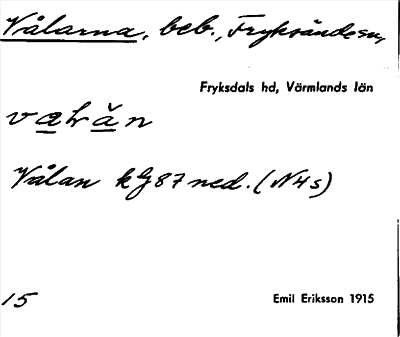 Vålarna, beb., Fryksände sn,
Fryksdals hd, Värmlands län
Vålan kg 87 ned. (N4s)
15
Emil Eriksson 1915